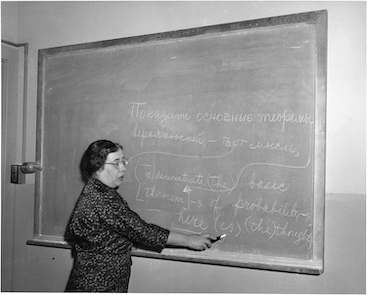 Показать основные теоремы
вероятностей, – вот мысль,
(To) demonstrate (the) basic
[theorem]-s of probability-
– here (is) (the) thought